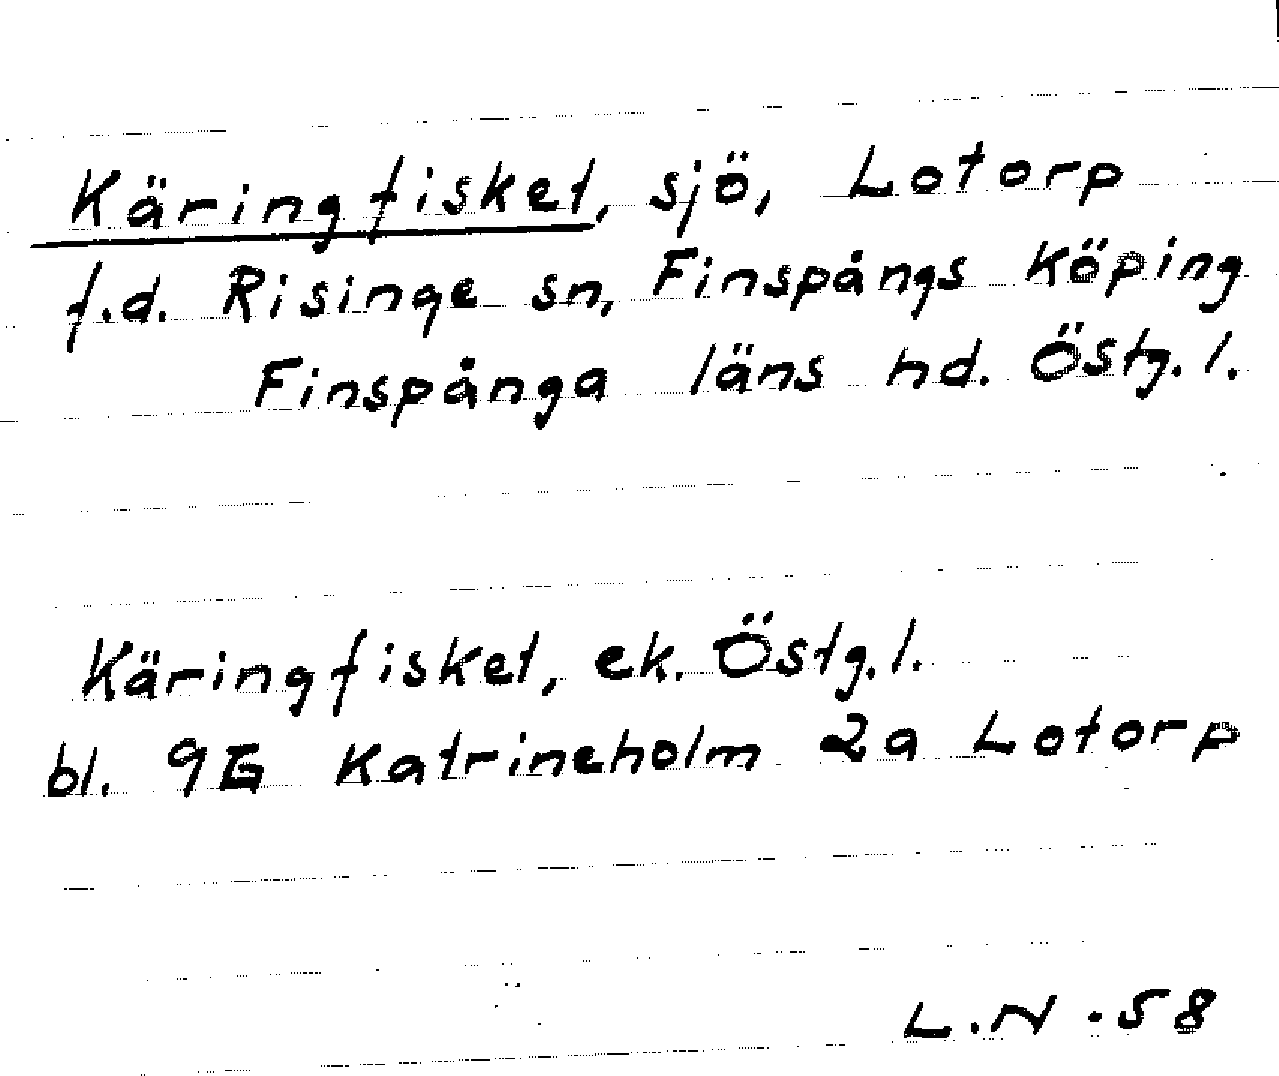 Käringfisket, sjö, Lotorp
f.d. Risinge sn, Finspångs köping
Finspånga läns hd. Östg. l.
Käringfisket, ek. Östg. l.
bl. 9G Katrineholm 2a Lotorp
L.N -58